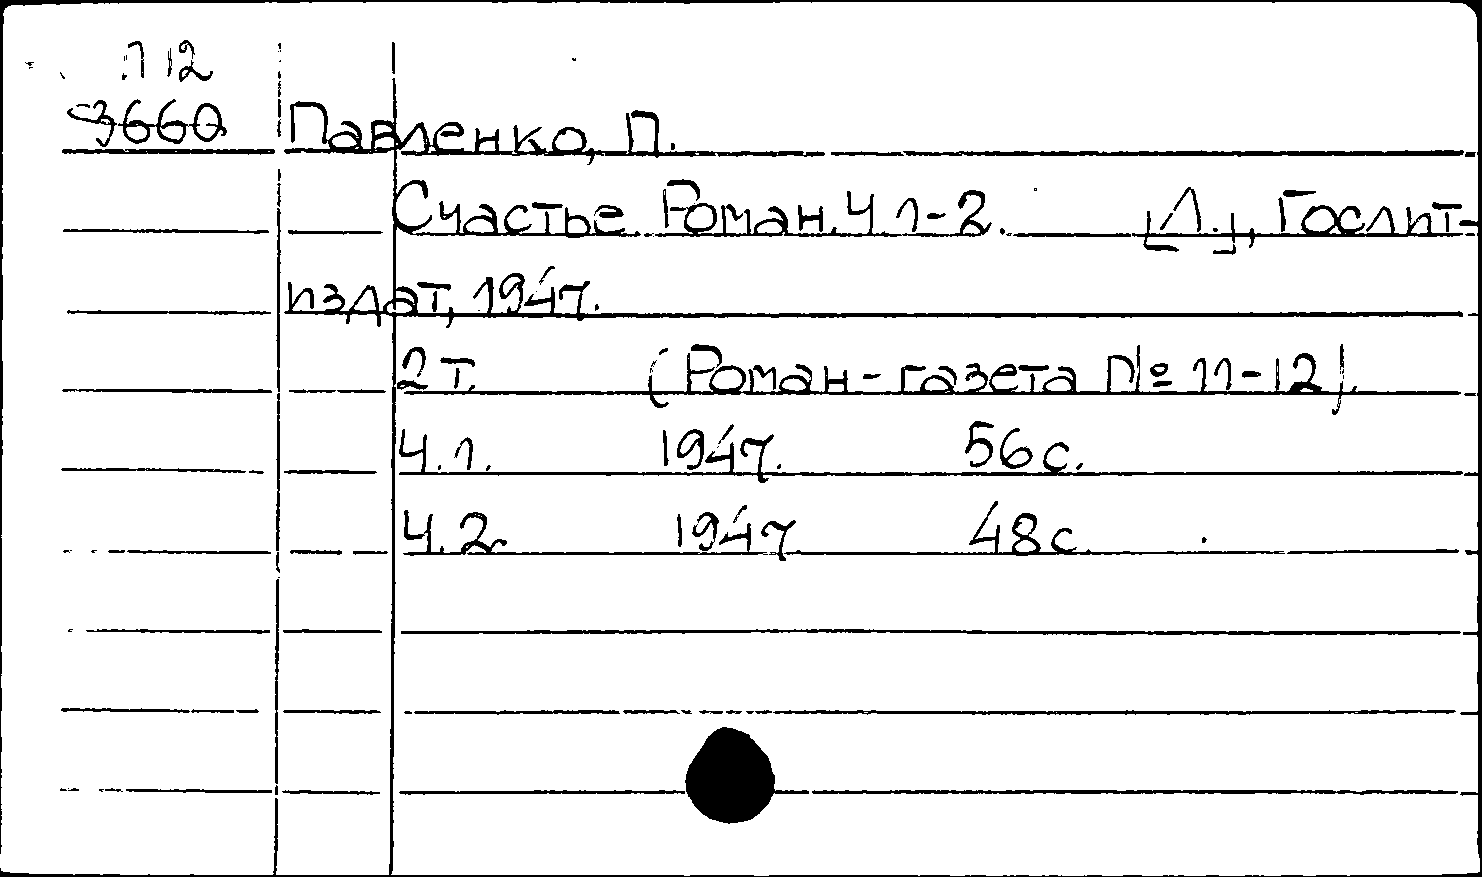 П 12
3660
Павленко, П.
Счастье. Роман. Ч 1-2. [Л.], Гослит-
издат, 1947.
2 т. (Роман-газета № 11-12).
Ч.1. 1947. 56 с.
Ч.2. 1947 48 с.